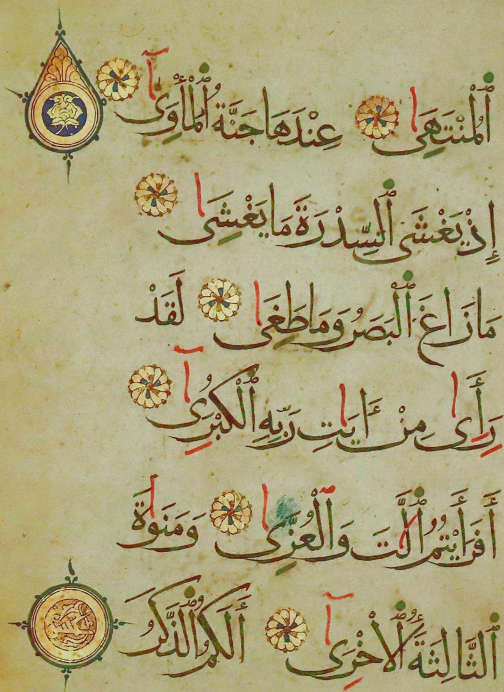 ٱلْمُنْتَهَىٰ عِنْدَهَا جَنَّةُ ٱلْمَأْوَىٰ
إِذْ يَغْشَى ٱلسِّدْرَةَ مَا يَغْشَىٰ
مَا زَاغَ ٱلْبَصَرُ وَمَا طَغَىٰ لَقَدْ
رَأَىٰ مِنْ ءَايَٰتِ رَبِّهِ ٱلْكُبْرَىٰ
أَفَرَأَيْتُمُ ٱللَّٰتَ وَٱلْعُزَّىٰ وَمَنَوٰةَ
ٱلثَّالِثَةَ ٱلْأُخْرَىٰ أَلَكُمُ ٱلذَّكَرُ